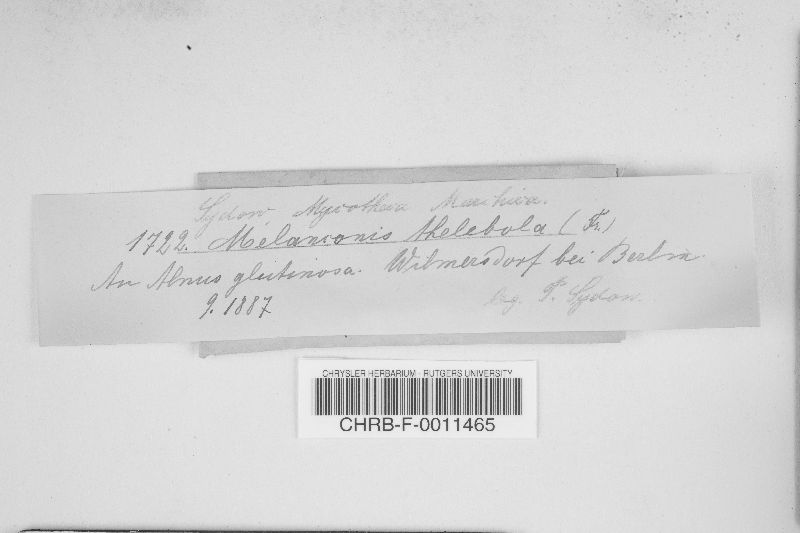 Sydow, Mycotheca Marchica.
1722. Melanconis thelebola (Fr.)
An Alnus glutinosa. Wilmersdorf bei Berlin.
9. 1887 leg. P. Sydow.
CHRYSLER HERBARIUM - RUTGERS UNIVERSITY
CHRB-F-0011465